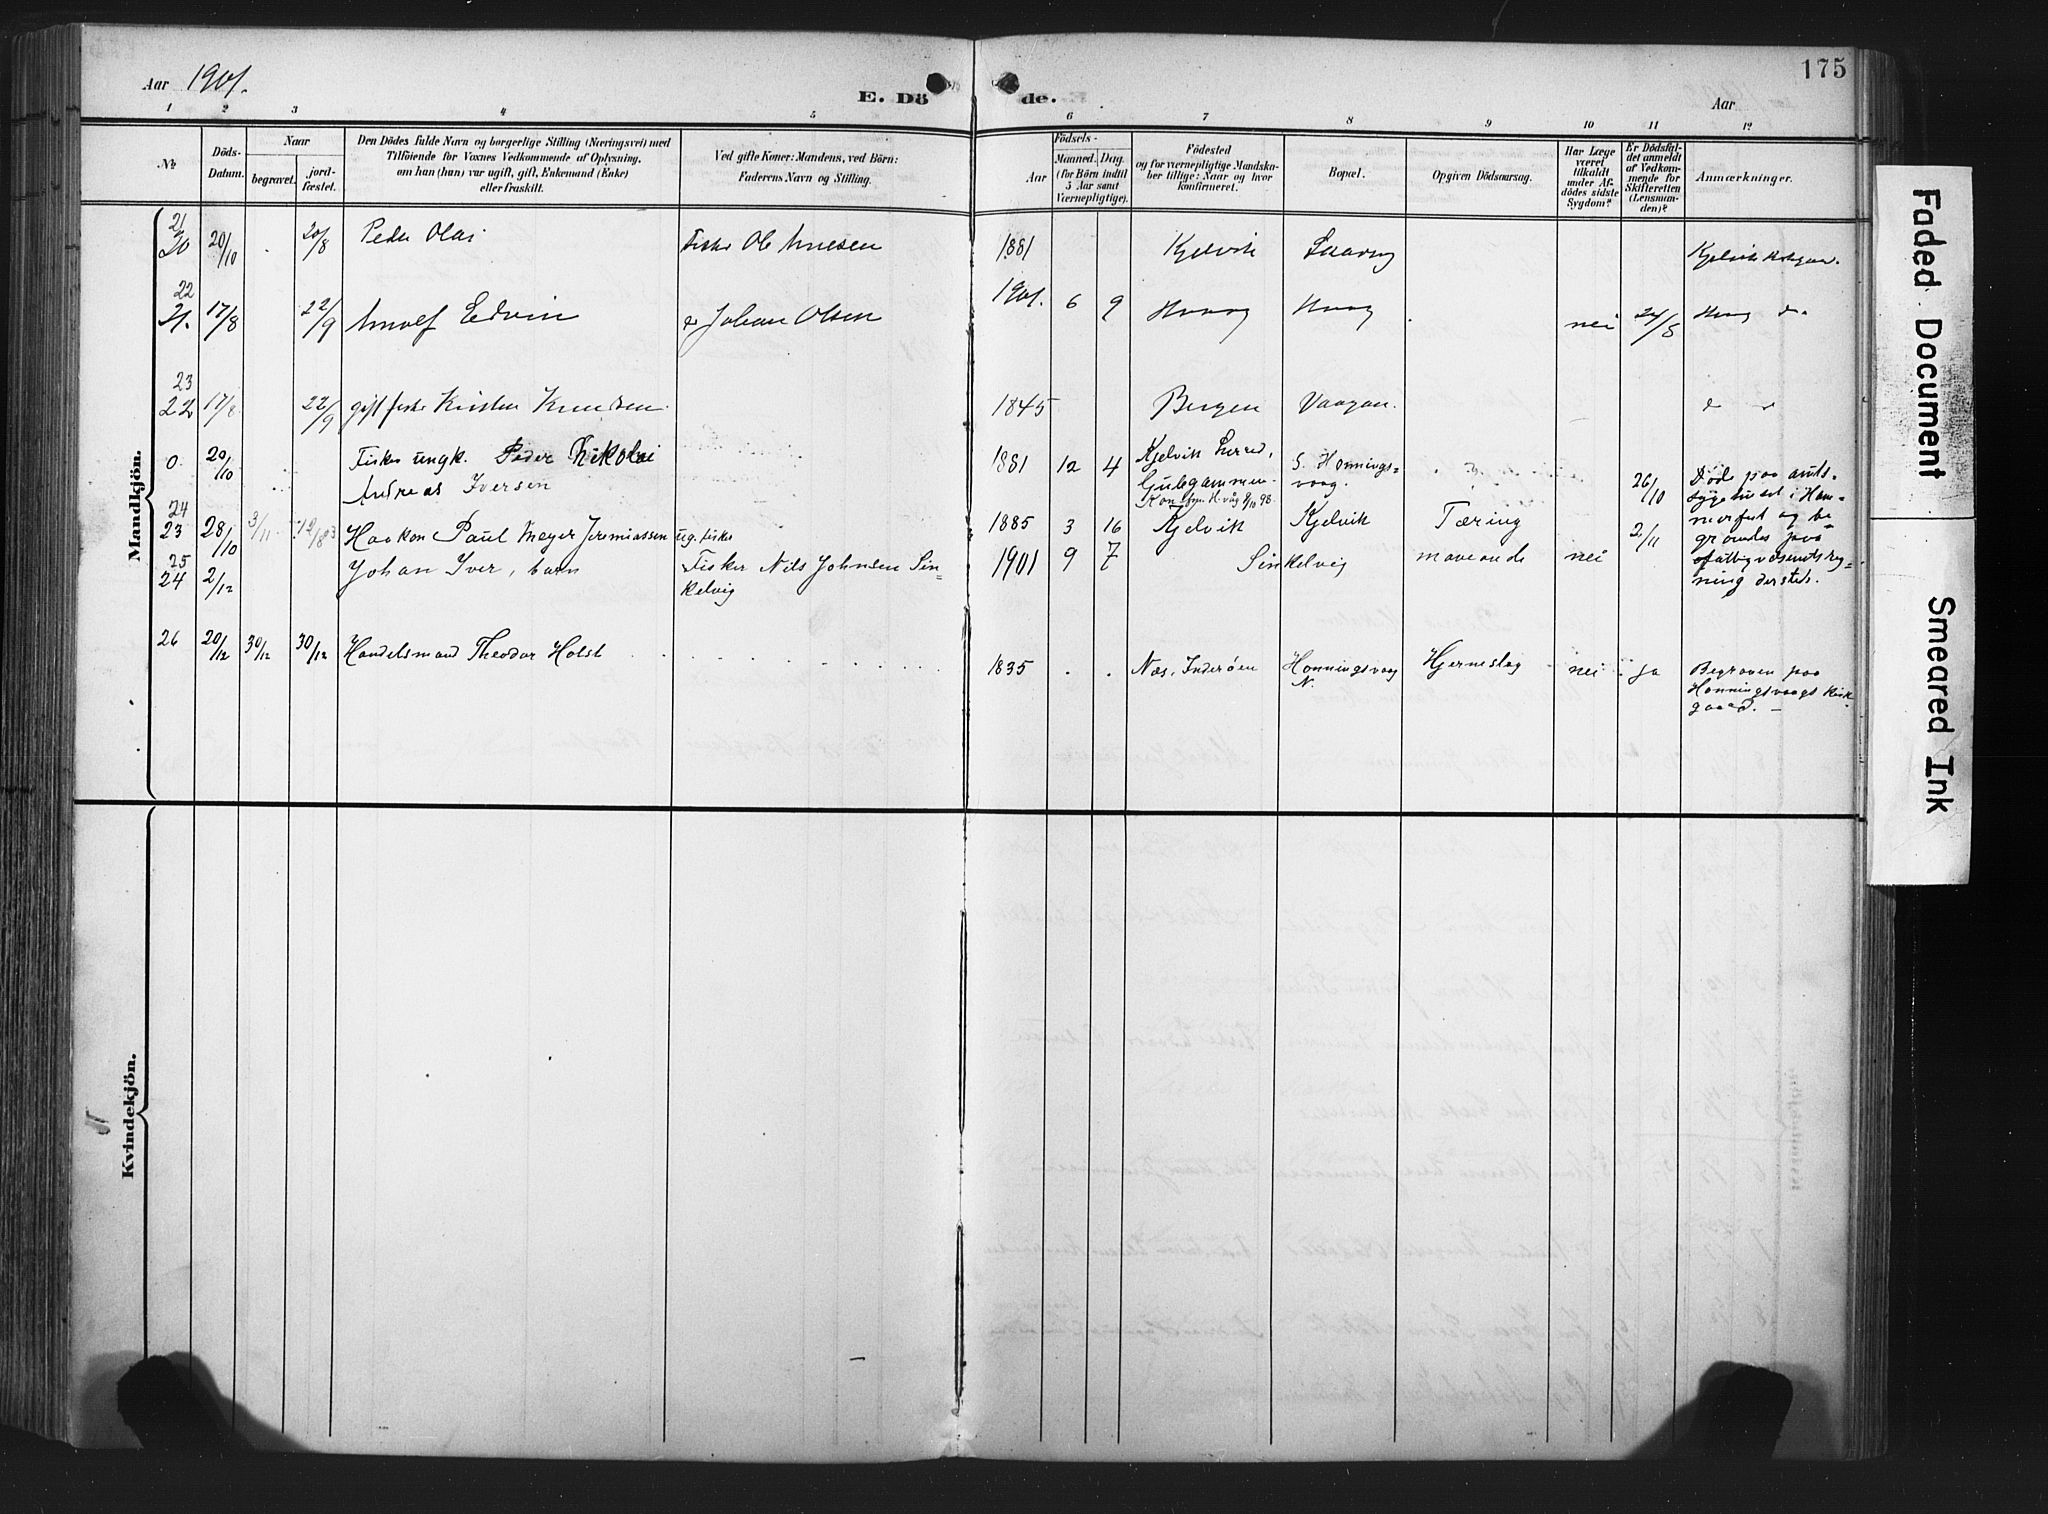 Aar 1901.
E. Döde.
Aar
175
1 2 3 4 5 6 7 8 9 10 11 12
No
Döds-Datum.
Naar
begravet.
jord-fæstet.
Den Dödes fulde Navn og borgerlige Stilling (Næringsvei) med
Tilföiende for Voxnes Vedkommende af Oplysning,
om han (hun) var ugift, gift, Enkemand (Enke)
eller fraskilt.
Ved gifte Koner: Mandens, ved Börn:
Faderens Navn og Stilling.
Födsels-
Aar
Maaned. Dag.
(for Börn indtil
5 Aar samt
Værnepligtige).
Födested
og for værnepligtige Mandska-
ber tillige: Naar og hvor
konfirmeret.
Bopæl.
Opgiven Dödsaarsag.
Har Læge
været
tilkaldt
under Af-
dödes sidste
Sygdom?
Er Dödsfal-
det anmeldt
af Vedkom-
mende for
Skifteretten
(Lensman-
den)?
Anmærkninger.
Mandkjön.
21
20 20/10 20/8 Peder Olai Fisker Ole 1881 Kjelvik
22
21. 17/8 22/9 Arnolf Edvin Johan Olsen 1901. 6 9 nei 24/8
23
22 17/8 22/9 gift fisker Kristen Knudsen 1845 Bergen
0 20/10 Fisker ungk. Peder Nikolai
Andreas Iversen
1881 12 4 Kjelvik
S. Honnings-
vaag.
26/10 Döde paa amts-
sygehuset i Ham-
merfest og be-
24
23 28/10 3/11 Haakon Paul Meyer Jeremiassen ug. fisker 1885 3 16 Kjelvik Kjelvik Tæring 2/11
25
24 2/12 Johan Iver, barn Fisker Nils Johnsen Sin-
kelvig
1901 9 7 Sinkelvig maveonde nei
26 20/12 30/12 30/12 Handelsmand Theodor Holst
1835 Næs, Inderøen Honningsvaag
N.
Hjerneslag nei ja Begraven paa
Honningsvaags Kirk-
gaard.
Kvindekjön.
Faded Document
Smeared Ink